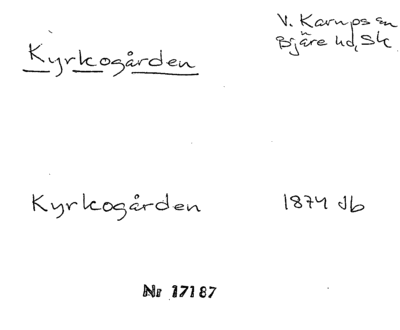 Kyrkogården
V. Karups sn
Bjäre hd, Sk
Kyrkogården
1874 Jb
Nr 17187